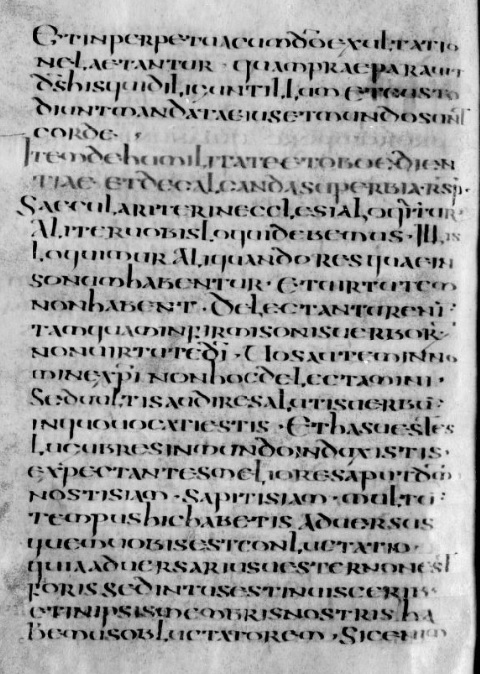 Et in perpetua cum dō exultatio
ne laetantur · quam praeparauit
dš his qui diligunt illum et custo
diunt mandata eius et mundo sunt
corde ·
Item de humilitate et oboedien
tiae et de calcanda superbia · rsp ·
Saeculariter in ecclesia loquitur
Aliter uobis loqui debemus · Illis
loquimur Aliquando res quae in
sonum habentur · Et uirtutem
non habent · Delectantur eni
tamquam infirmi sonis uerbor
non uirtute dī · Uos autem in no
mine xpī non hoc delectamini ·
Sed uultis audire salutis uerbū
in quo uocati estis · Et has uestes
lugubres in mundo induxistis
expectantes meliores aput dm
nostis iam · sapitis iam · multū
tempus hic habetis Aduersus
quem uobis est conluctatio ·
quia aduersarius uester non est
foris sed intus est in uiscerib
et in ipsis membris nostris ha
bemus obluctatorem · Sic enim